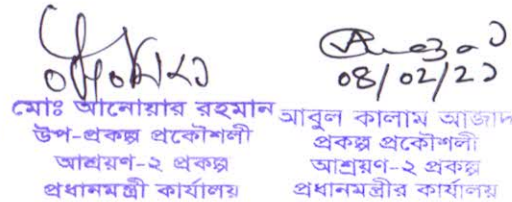 মোঃ আনোয়ার রহমান
উপ-প্রকল্প প্রকৌশলী
আশ্রয়ণ-২ প্রকল্প
প্রধানমন্ত্রী কার্যালয়
০৪/০২/২১
আবুল কালাম আজাদ
প্রকল্প প্রকৌশলী
আশ্রয়ণ-২ প্রকল্প
প্রধানমন্ত্রীর কার্যালয়